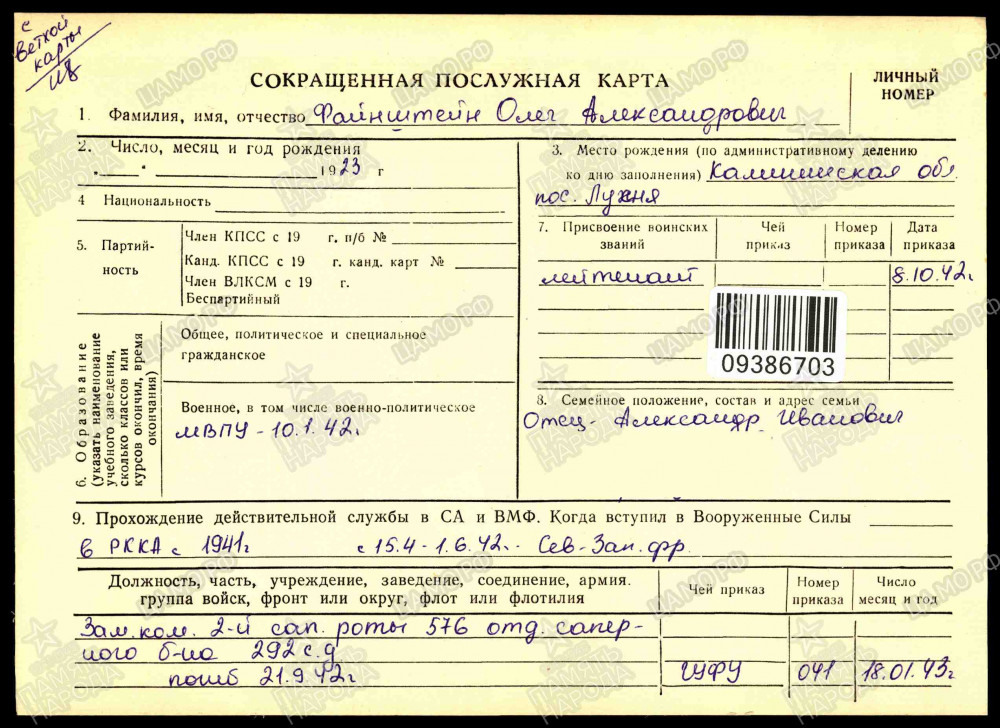 с
веткой
карты
СОКРАЩЕННАЯ ПОСЛУЖНАЯ КАРТА
ЛИЧНЫЙ
НОМЕР
1. Фамилия, имя, отчество Файнштейн Олег Александрович
2. Число, месяц и год рождения
"___" ______ 1923 г
3. Место рождения (по административному делению
ко дню заполнения) Калининская обл.
пос. Лухня
4 Национальность
5. Партий-
ность
Член КПСС с 19 г. п/б №
Канд. КПСС с 19 г. канд. карт №
Член ВЛКСМ с 19 г.
Беспартийный
7. Присвоение воинских
званий
Чей
приказ
Номер
приказа
Дата
приказа
лейтенант 8.10.42г.
09386703
6. Образование
(указать наименование
учебного заведения,
сколько классов или
курсов окончил, время
окончания)
Общее, политическое и специальное
гражданское
Военное, в том числе военно-политическое
МВПУ - 10.1.42г.
8. Семейное положение, состав и адрес семьи
Отец - Александр Иванович
9. Прохождение действительной службы в СА и ВМФ. Когда вступил в Вооруженные Силы
в РККА с 1941г с 15.4 - 1.6.42. Сев-Зап. фр.
Должность, часть, учреждение, заведение, соединение, армия.
группа войск, фронт или округ, флот или флотилия
Чей приказ
Номер
приказа
Число
месяц и год
Зам. ком. 2-й сап. роты 576 отд. сапер-
ного б-на 292 с.д
погиб 21.9.42г ГУФУ 041 18.01.43г